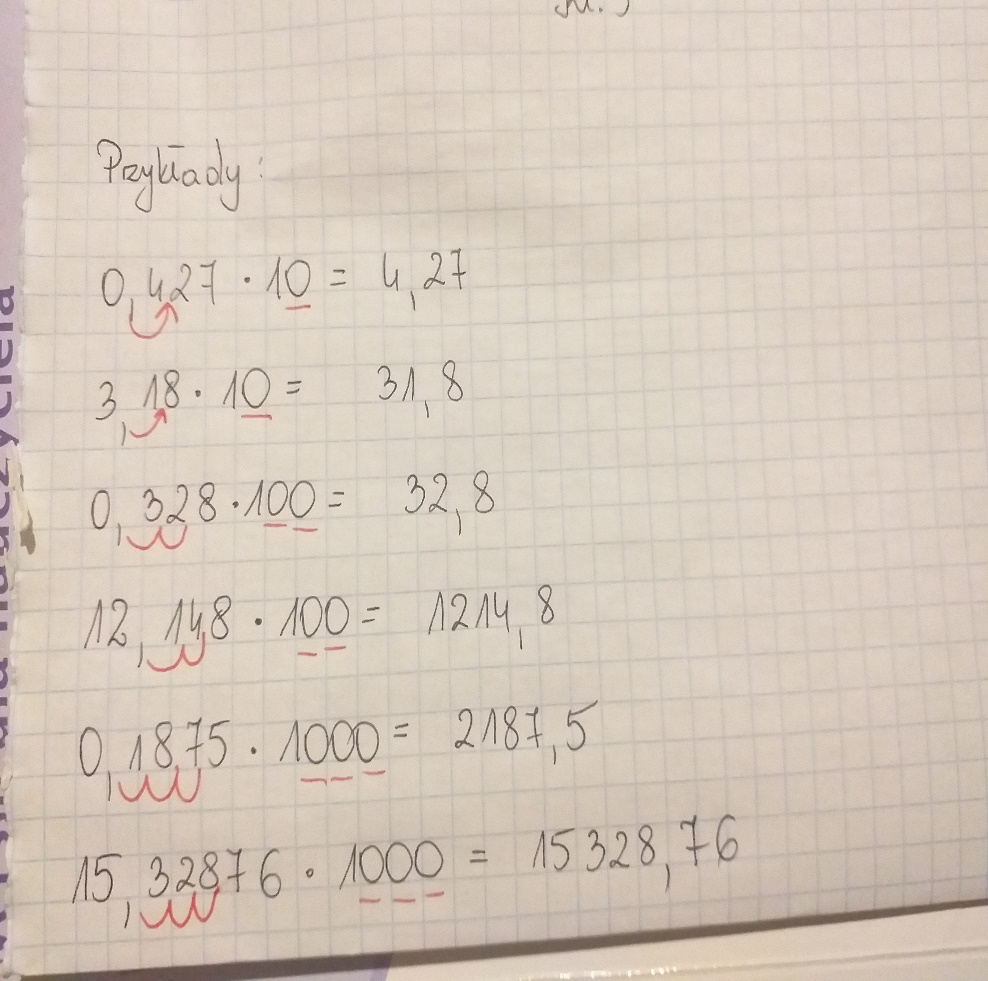 Przykłady:
0,427 · 10 = 4,27
3,18 · 10 = 31,8
0,328 · 100 = 32,8
12,148 · 100 = 1214,8
0,1875 · 1000 = 2187,5
15,32876 · 1000 = 15328,76